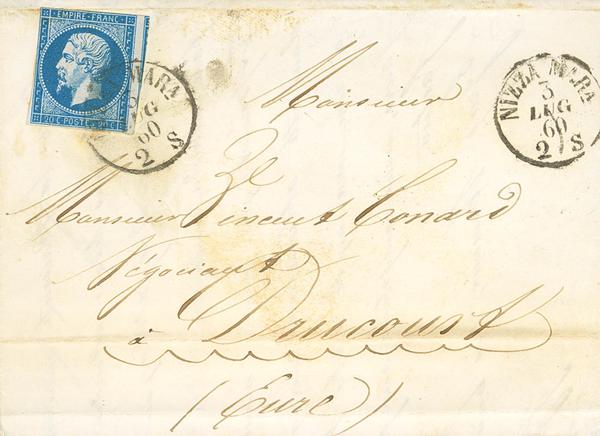 EMPIRE FRANC
20 C. POSTES 20 C.
MARA
UG
60
2 S
NIZZA MARA
3
LUG
60
2 S
Monsieur
Monsieur Vincent Conard
Négociant
à Drucourt
(Eure)